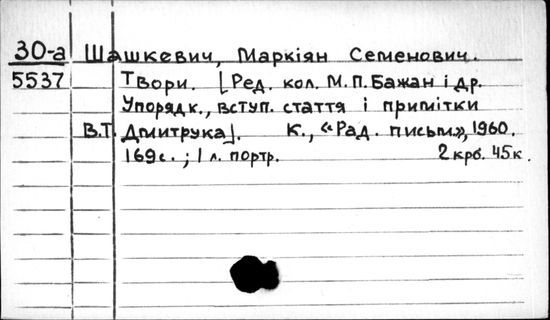 30-а Шашкевич, Маркіян Семенович.
5537 Твори. [Ред. кол. М.П. Бажан і др.
Упорядк., вступ. стаття і примітки
В.Т. Дмитрука]. К., «Рад. письм.», 1960.
169с. ; 1 л. портр. 2 крб. 45к.